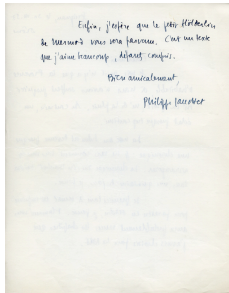 Enfin, j'espère que le petit Hölderlin
de Mermod vous sera parvenu. C'est un texte
que j'aime beaucoup, défauts compris.
Bien amicalement,
Philippe Jaccottet